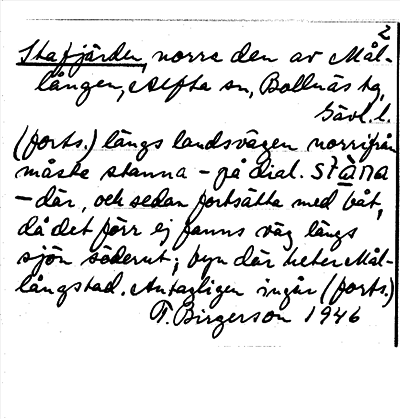 2
Stafjärden, norra den av Mål-
lången, Alfta sn, Bollnäs tg,
Gävl. l.
(forts.) längs landsvägen norrifrån
måste stanna - på dial. stàna
- där, och sedan fortsätta med båt,
då det förr ej fanns väg längs
sjön söderut; byn där heter Mål-
långstad. Antagligen ingår (forts.)
T. Birgerson 1946